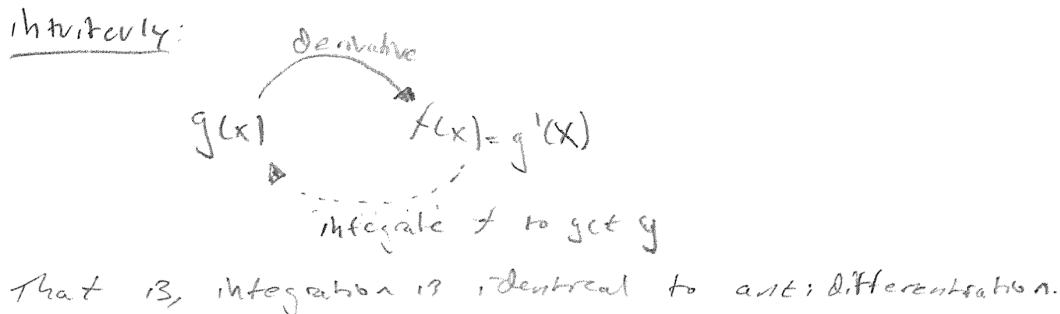 intuitevly:
derivative
g(x) f(x) = g'(x)
integrate f to get g
That is, integration is identical to antidifferentiation.